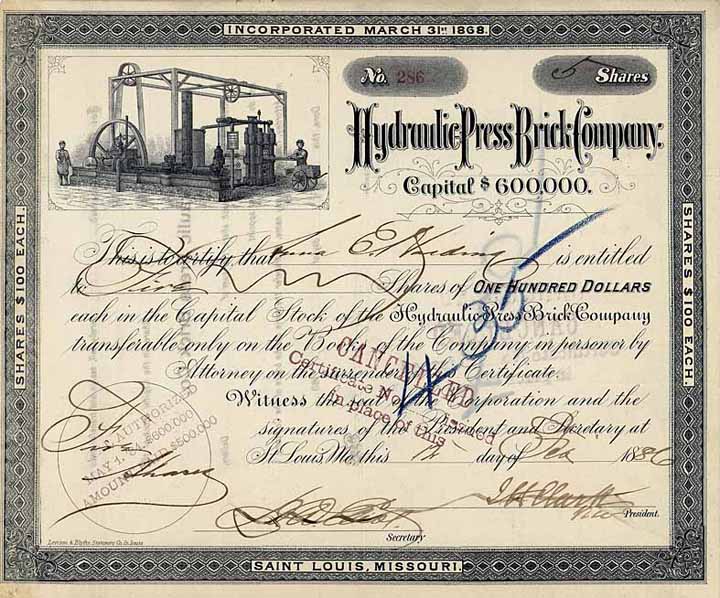 INCORPORATED MARCH 31st 1868.
No. 286
5 Shares
Hydraulic Press Brick Company.
Capital $600,000.
SHARES $100 EACH.
SHARES $100 EACH.
This is to certify that Anna E. is entitled
to Five Shares of ONE HUNDRED DOLLARS
each in the Capital Stock of the Hydraulic Press Brick Company
transferable only on the Books of the Company in person or by
Attorney on the surrender of this Certificate.
CANCELLED
Certificate No. Issued
in place of this
Witness the seal of the Corporation and the
signatures of the President and Secretary at
St Louis, Mo. this day of Dec 1886
Five
Shares
AUTHORIZED
MAY 1. $600.000
AMOUNT PAID $500.000
Clark
President.
Secretary
Levison & Blythe Stationery Co. St. Louis
SAINT LOUIS, MISSOURI.